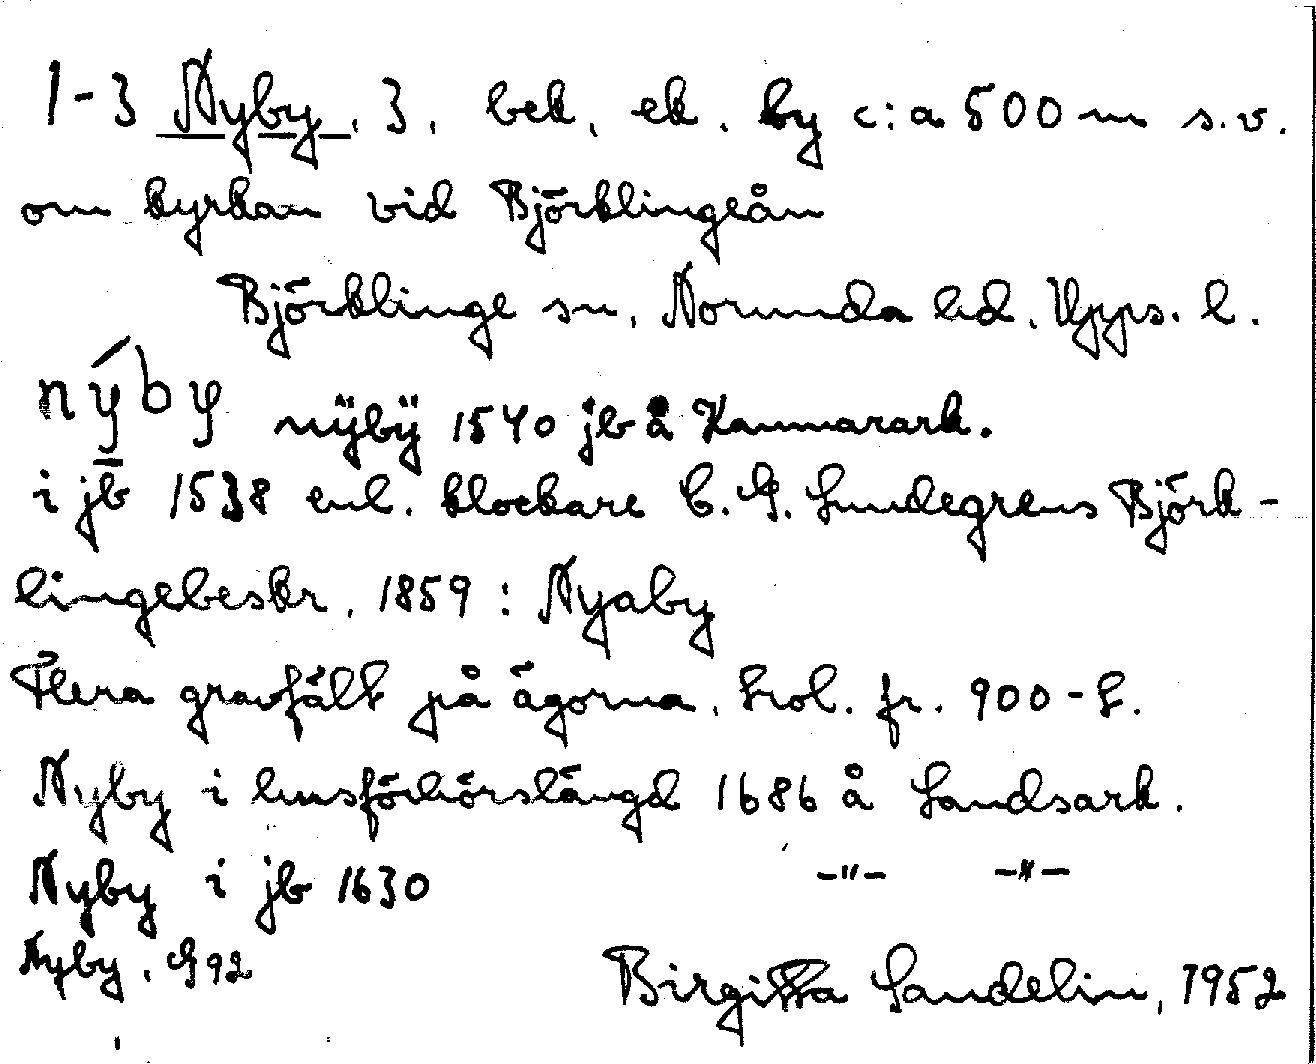 1-3 Nyby, 3, bek. ek. by c:a 500 m s.v.
om kyrkan vid Björklingeån
Björklinge sn, Norunda hd. Upps. l.
nýby nÿbÿ 1540 jb å Kammarark.
i jb 1538 enl. klockare C. G. Lundegrens Björk-
lingebeskr. 1859 : Nyaby
Flera gravfält på ägorna, trol. fr. 900-t.
Nyby i husförhörslängd 1686 å Landsark.
Nyby i jb 1630 -"- -"-
Nyby, G92
Birgitta Sandelin, 1952